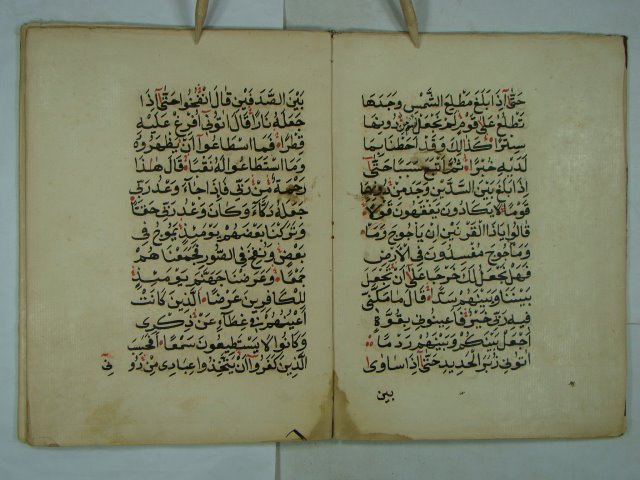 حَتّٰى اِذَا بَلَغَ مَطْلِعَ الشَّمْسِ وَجَدَهَا
تَطْلُعُ عَلٰى قَوْمٍ لَمْ نَجْعَلْ مِنْ دُونِهَا
سِتْرًا كَذٰلِكَ وَقَدْ اَحَطْنَا بِمَا
لَدَيْهِ خُبْرًا ثُمَّ اَتْبَعَ سَبَبًا حَتّٰى
اِذَا بَلَغَ بَيْنَ السَّدَّيْنِ وَجَدَ مِنْ دُونِهِمَا
قَوْمًا لَا يَكَادُونَ يَفْقَهُونَ قَوْلًا
قَالُوا يَا ذَا الْقَرْنَيْنِ اِنَّ يَاْجُوجَ وَمَا
وَمَاْجُوجَ مُفْسِدُونَ فِي الْاَرْضِ
فَهَلْ نَجْعَلُ لَكَ خَرْجًا عَلٰى اَنْ تَجْعَلَ
بَيْنَنَا وَبَيْنَهُمْ سَدًّا قَالَ مَا مَكَّنِّي
فِيهِ رَبِّي خَيْرٌ فَاَعِينُونِي بِقُوَّةٍ
اَجْعَلْ بَيْنَكُمْ وَبَيْنَهُمْ رَدْمًا
اٰتُونِي زُبَرَ الْحَدِيدِ حَتّٰى اِذَا سَاوٰى
بين
بَيْنَ الصَّدَفَيْنِ قَالَ انْفُخُوا حَتّٰى اِذَا
جَعَلَهُ نَارًا قَالَ اٰتُونِي اُفْرِغْ عَلَيْهِ
قِطْرًا فَمَا اسْطَاعُوا اَنْ يَظْهَرُوهُ
وَمَا اسْتَطَاعُوا لَهُ نَقْبًا قَالَ هٰذَا
رَحْمَةٌ مِنْ رَبِّي فَاِذَا جَاءَ وَعْدُ رَبِّي
جَعَلَهُ دَكَّاءَ وَكَانَ وَعْدُ رَبِّي حَقًّا
وَتَرَكْنَا بَعْضَهُمْ يَوْمَئِذٍ يَمُوجُ فِي
بَعْضٍ وَنُفِخَ فِي الصُّورِ فَجَمَعْنَاهُمْ
جَمْعًا وَعَرَضْنَا جَهَنَّمَ يَوْمَئِذٍ
لِلْكَافِرِينَ عَرْضًا الَّذِينَ كَانَتْ
اَعْيُنُهُمْ فِي غِطَاءٍ عَنْ ذِكْرِي
وَكَانُوا لَا يَسْتَطِيعُونَ سَمْعًا اَفَحَسِبَ
الَّذِينَ كَفَرُوا اَنْ يَتَّخِذُوا عِبَادِي مِنْ دُو
ني